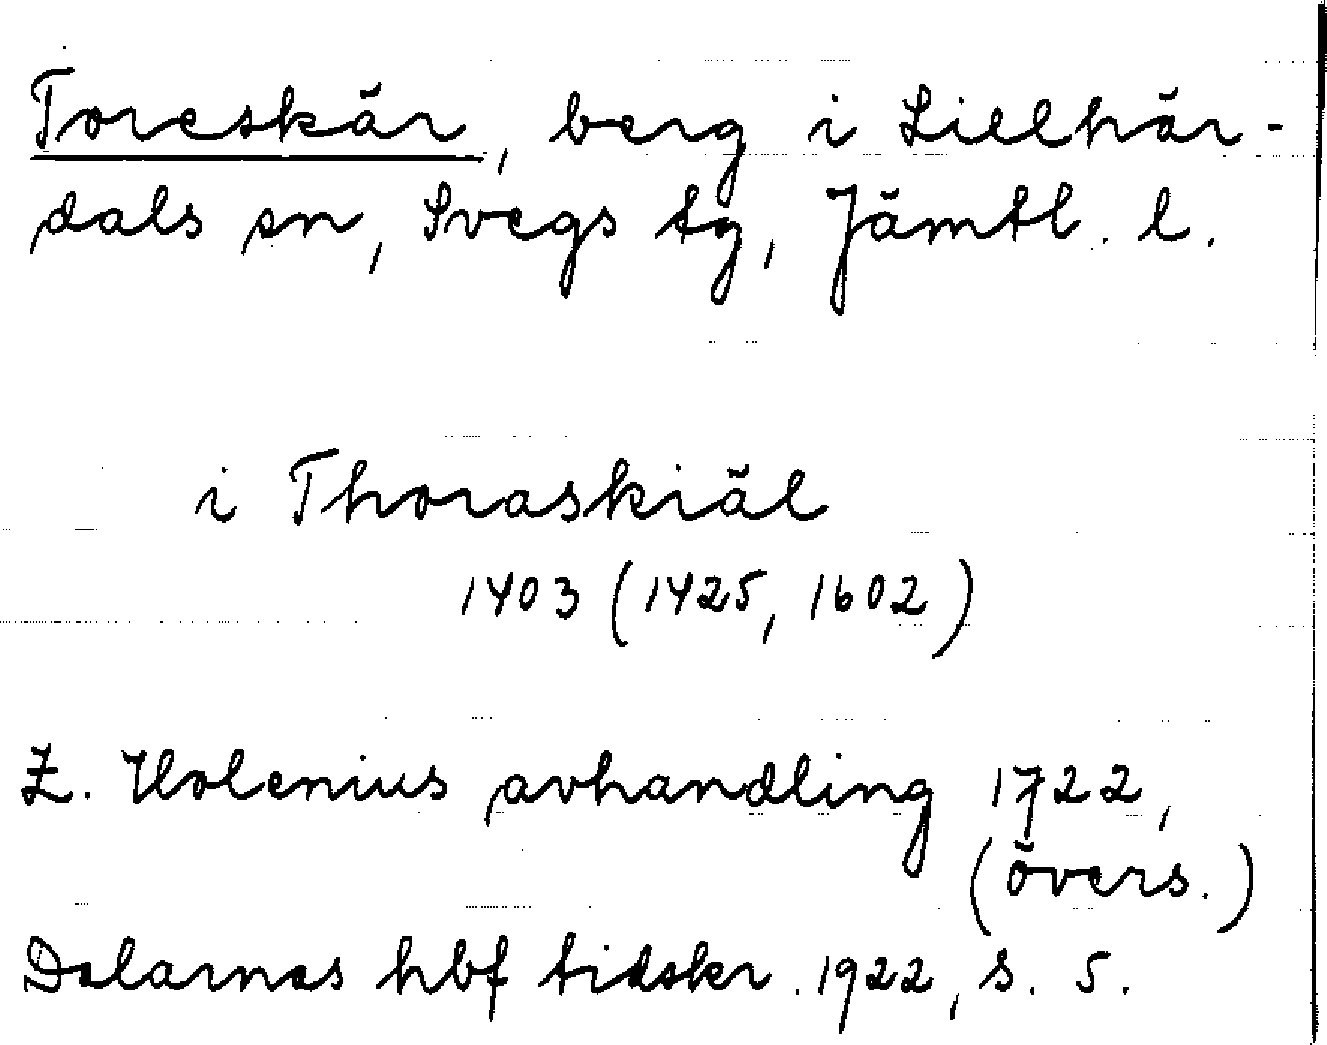 Toreskär, berg i Lillhär-
dals sn, Svegs tg, Jämtl. l.
i Thoraskiäl
1403 (1425, 1602)
Z. Holenius avhandling 1722,
(övers.)
Dalarnas hbf tidskr. 1922, s. 5.